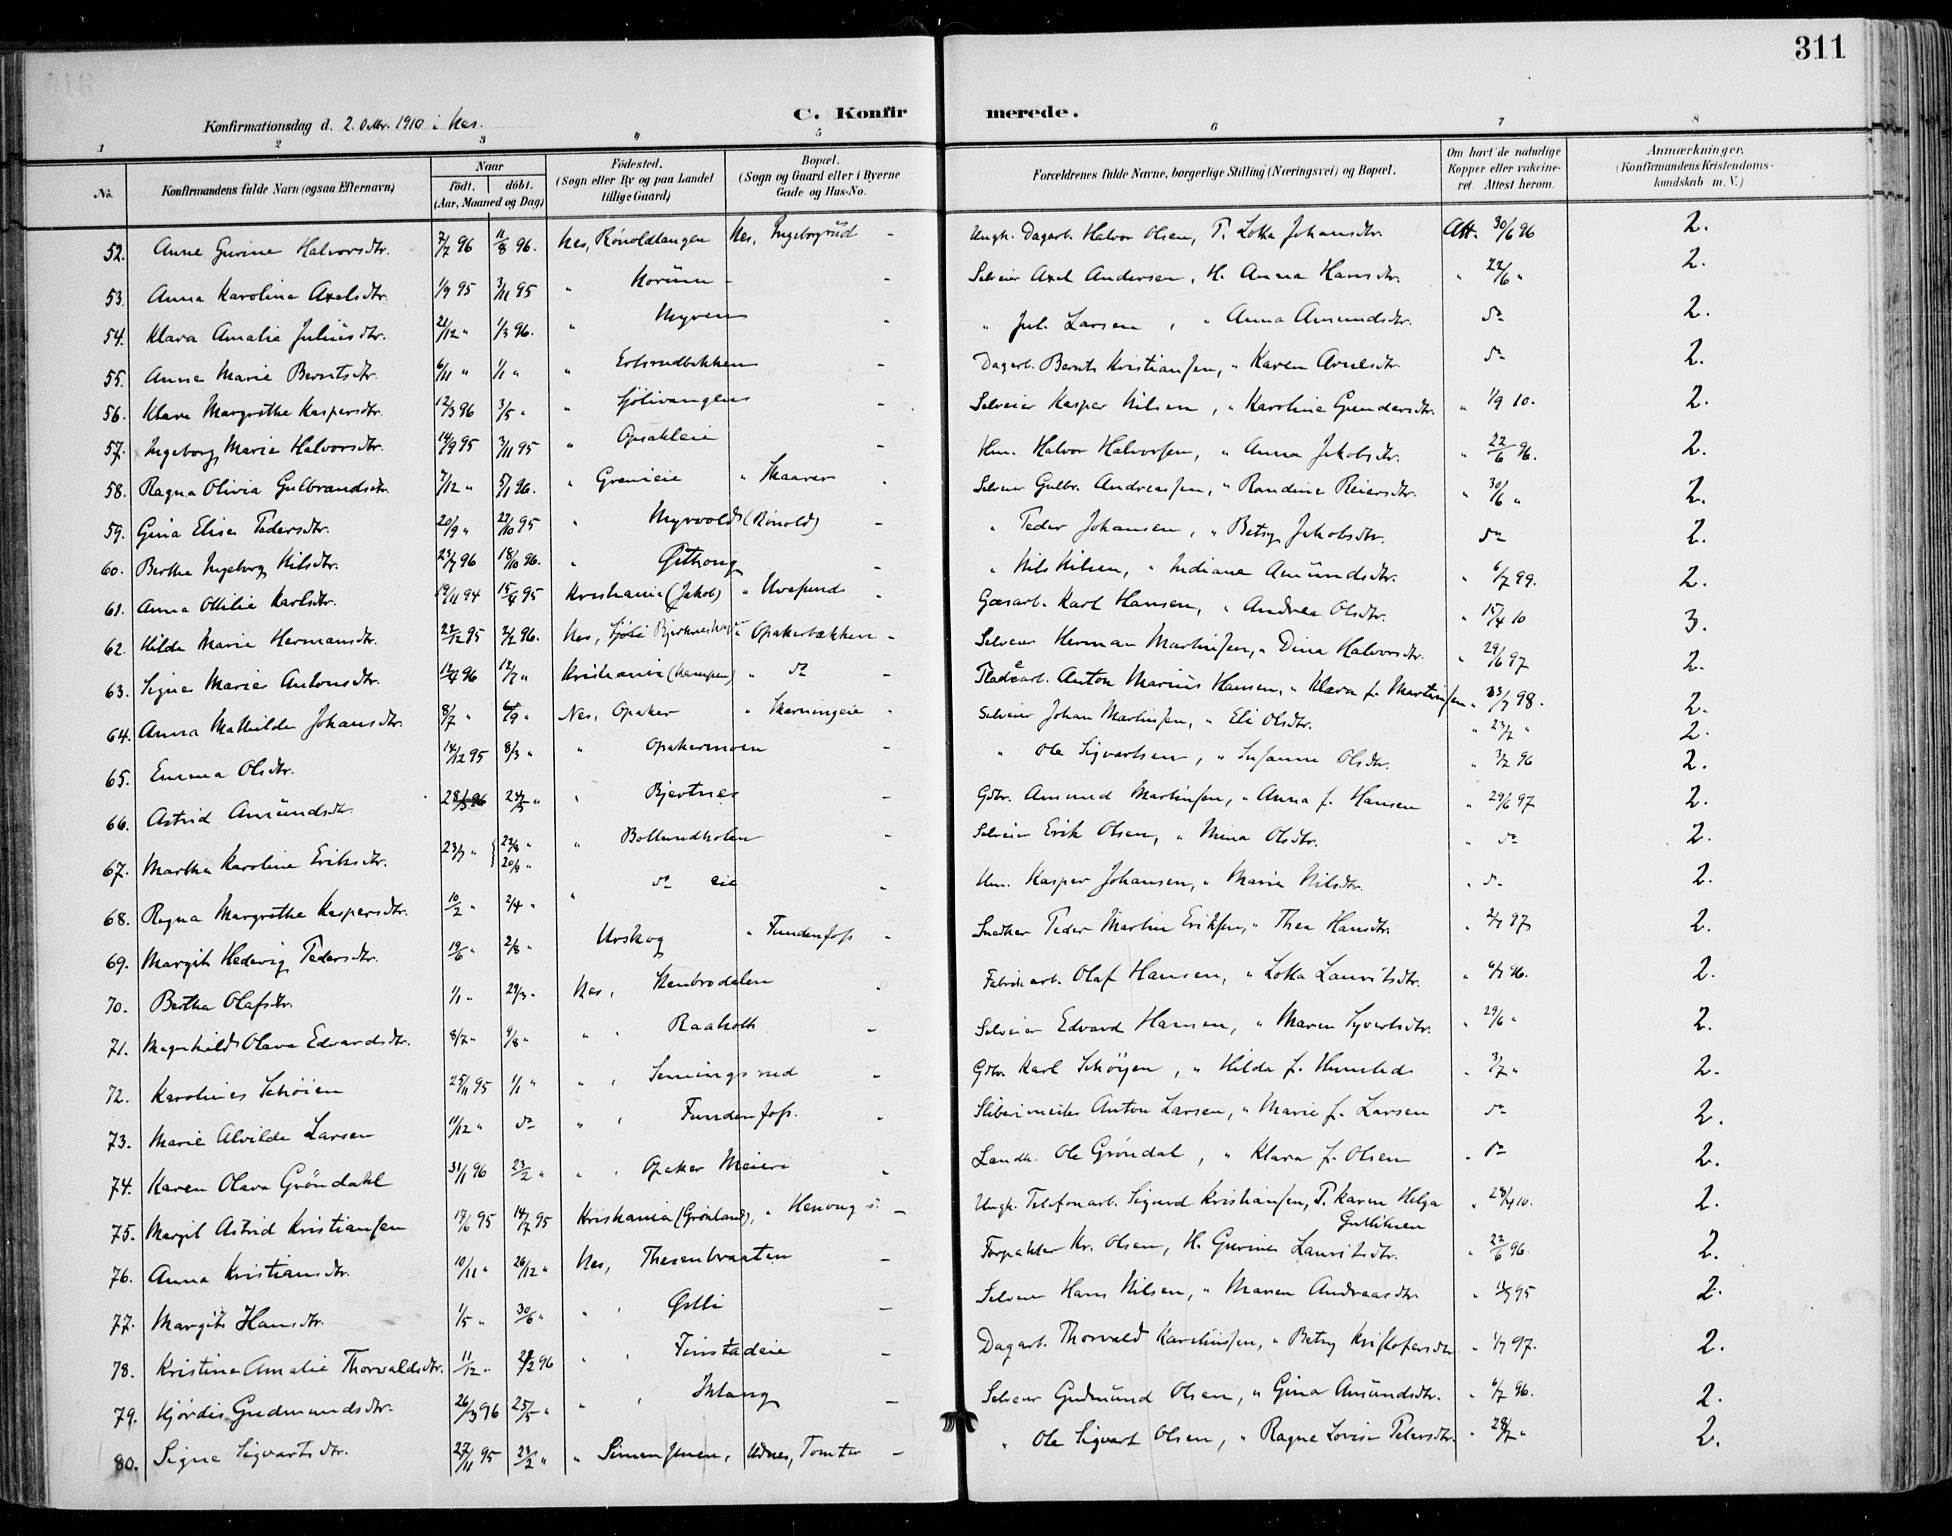 311
Konfirmationsdag d. 2. Oktbr. 1910 i Nes.
C. Konfirmerede.
1 2 3 4 5 6 7 8
No. Konfirmandens fulde Navn (ogsaa Efternavn) Naar födt. döbt. (Aar, Maaned og Dag) Födested. (Sogn eller By og paa Landet tillige Gaard) Bopæl. (Sogn og Gaard eller i Byerne Gade og Hus-No. Forældrenes fulde Navne, borgerlige Stilling (Næringsvei) og Bopæl. Om havt de naturlige Kopper eller vaccineret. Attest herom. Anmærkninger. (Konfirmandens Kristendomskundskab m. V.)
52. Anne Gurine Halvorsdtr. 7/7 96 11/8 96. Nes, Rönoldtangen Nes, Ingeborgrud - Ungk. Dagarb. Halvor Olsen, P. Lotta Johansdtr. Att. 30/6 96 2.
53. Anna Karoline Axelsdtr. 1/9 95 3/11 95 " Korünn - - Selveier Axel Andersen, H. Anna Hansdtr. " 22/6 " 2.
54. Klara Amalie Juliusdtr. 21/12 " 1/3 96. " Myren - " Jul. Larsen, " Anna Amundsdtr. do 2.
55. Anna Marie Berntsdtr. 6/11 " 1/1 " " - Dagarb. Bernts Kristiansen, " Karen Arnesdtr. do 2.
56. Klara Margrethe Kaspersdtr. 12/3 96 3/5 " " Sjölivangen - Selveier Kasper Nilsen, " Karoline Gundersdtr. " 1/9 10. 2.
57. Ingeborg Marie Halvorsdtr. 14/9 95 3/11 95 " Opakleie - Hm. Halvor Halvorsen, " Anna Jakobsdtr. " 22/6 96. 2.
58. Ragna Olivia Gulbrandsdtr. 7/12 " 5/1 96. " Grenieie " Skaarer - Selveier Gulbr. Andreassen, " Randine Reiersdtr. " 30/6 " 2.
59. Gina Elise Pedersdtr. 20/9 " 27/10 95 " Myrvold (Rönold) - " Peder Johansen, " Betsy Jakobsdtr. do 2.
60. Berthe Ingeborg Nilsdtr. 23/7 96 18/10 96. " Östhong - " Nils Nilsen, " Indiane Amündsdtr. " 6/7 99. 2.
61. Anna Ottilie Karlsdtr. 19/11 94 15/4 95 Kristiania (Jakob) " Uvesund - Gasarb. Karl Hansen, " Andrea Olsdtr. " 15/4 10 3.
62. Hilda Marie Hermansdtr. 22/12 95 2/2 96. Nes, " Opakerbakken - Selveier Herman Martinsen, " Dina Halvorsdtr. " 29/6 97 2.
63. Signe Marie Antonsdtr. 12/4 96 12/7 " Kristiania (Kampen) " do - Anton Marius Hansen, " Klara f. Martinsen " 98. 2.
64. Anna Mathilde Johansdtr. 8/7 " 6/9 " Nes, Opaker " Skarningeie - Selveier Johan Martinsen, " Eli Olsdtr. " 23/7 " 2.
65. Emma Olsdtr. 14/12 95 8/3 " " Opakermoen - " Ole Sigvartsen, " Susanne Olsdtr. " 3/7 96 2.
66. Astrid Amündsdtr. 28/3 96 24/5 " " Bjertnes - Gdbr. Amund Martinsen, " Anna f. Hansen " 29/6 97 2.
67. Martha Karoline Eriksdtr. 23/7 " 23/8 " 20/9 " " Bollerudholen - Selveier Erik Olsen, " Mina Olsdtr. " do 2.
68. Ragna Margrethe Kaspersdtr. 10/2 " 2/4 " " do eie - Hm. Kasper Johansen, " Marie Nilsdtr. " do 2.
69. Margit Hedevig Pedersdtr. 19/6 " 2/8 " Urskog " Fundenfoss - Snedker Peder Martin Eriksen, " Thea Hansdtr. " 2/7 97 2.
70. Bertha Olafsdtr. 1/1 " 29/3 " Nes, Stenbrodalen - Fabrikarb. Olaf Hansen, " Lotta Lauritsdtr. " 6/7 96. 2.
71. Magnhild Olava Edvardsdtr. 8/7 " 9/8 " " Raaholt - Selveier Edvard Hansen, " Maren Syvertsdtr. " 29/6 " 2.
72. Karoline Schöien 25/11 95 1/1 " " Henningsrud - Gdbr. Karl Schöyen, " Hilda f. Humlid " 3/7 " 2.
73. Marie Alvilde Larsen 11/12 " do " Fundenfoss. - Sliberimester Anton Larsen, " Marie f. Larsen do 2.
74. Karen Olava Gröndahl 31/1 96 23/2 " " Opaker Meieri - Landh. Ole Gröndal, " Klara f. Olsen " do 2.
75. Margit Astrid Kristiansen 17/6 95 14/7 95 Kristiania (Grönland), " - Ungk. Telefonarb. Sigurd Kristiansen, P. Karen Helga Gulliksen " 28/4 10. 2.
76. Anna Kristiansdtr. 10/11 " 26/12 " Nes, Thesenbraaten - Forpakter Kr. Olsen, H. Gurine Lauritsdtr. " 22/6 96. 2.
77. Margit Hansdtr. 1/5 " 30/6 " " Östli - Selveier Hans Nilsen, " Maren Andreasdtr " 95 2.
78. Kristine Amalie Thorvaldsdtr. 11/12 " 2/2 96 " Finstadeie - Dagarb. Thorvald Karelinssen, " Betsy Kristofersdtr. " 1/7 97. 2.
79. Hjördis Gudmundsdtr. 26/3 96 25/5 " " Ihlang - Selveier Gudmund Olsen, " Gina Amündsdtr. " 6/7 96. 2.
80. Signe Sigvartsdtr. 27/11 95 23/2 " " Simensmoen, Udnes, Tomter - " Ole Sigvart Olsen, " Ragna Lovise Petersdtr. " 28/7 " 2.